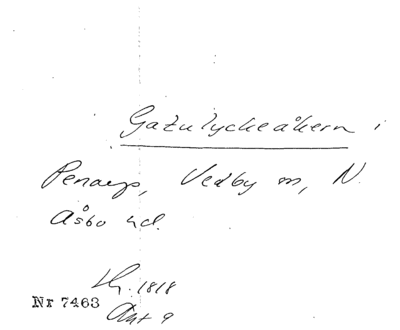 Gatulyckeåkern i
Penarp, Vedby sn, N.
Åsbo hd.
1818
Nr 7463
Akt 9